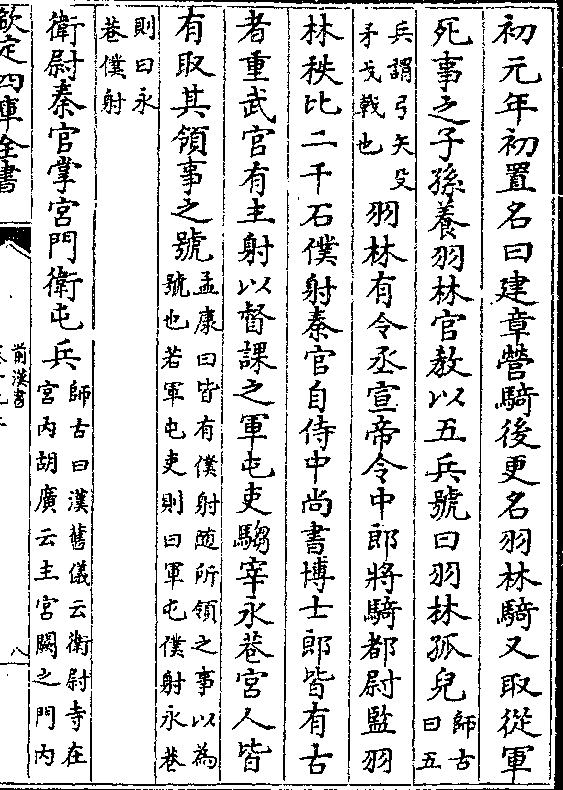 初元年初置名曰建章營騎後更名羽林騎又取從軍
死事之子孫養羽林官教以五兵號曰羽林孤兒師古曰五
兵謂弓矢殳矛戈戟也羽林有令丞宣帝令中郎將騎都尉監羽
林秩比二千石僕射秦官自侍中尚書博士郎皆有古
者重武官有主射以督課之軍屯吏騶宰永巷宮人皆
有取其領事之號孟康曰皆有僕射隨所領之事以為號也若軍屯吏則曰軍屯僕射永巷
則曰永巷僕射
衛尉秦官掌宮門衛屯兵師古曰漢舊儀云衛尉寺在宮內胡廣云主宮闕之門內
欽定四庫全書
前漢書
八